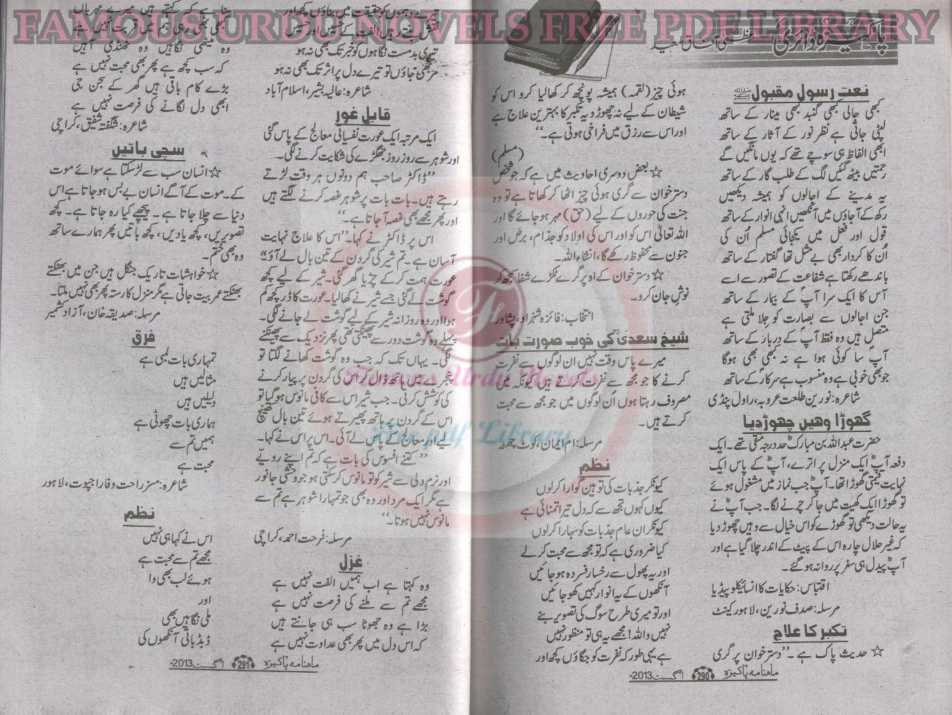 FAMOUS URDU NOVELS FREE PDF LIBRARY
نعت رسول مقبول ﷺ
کبھی جالی کبھی گنبد کبھی مینار کے ساتھ
لپٹی جاتی ہے نظر نور کے آثار کے ساتھ
ابھی الفاظ ہی سوچے تھے کہ یوں مانگیں گے
رحمتیں بیٹھ گئیں لگ کے طلب گار کے ساتھ
یہ مدینے کے اجالوں کو ہمیشہ دیکھیں
رکھ کے آجاؤں میں آنکھیں انہی انوار کے ساتھ
قول اور فعل میں یکجائی مسلم اُن کی
اُن کا کردار بھی بے مثل تھا گفتار کے ساتھ
باندھے رکھتا ہے شفاعت کے تصور سے اسے
آس کا ایک سرا آپ کے پیار کے ساتھ
جن اجالوں سے بصارت کو جلا ملتی ہے
متصل ہیں وہ فقط آپ کے دربار کے ساتھ
آپ سا کوئی ہوا ہے نہ کبھی بھی ہوگا
جو بھی خوبی ہے وہ منسوب ہے سرکار کے ساتھ
شاعرہ: نورین طلعت عروبہ، راول پنڈی
گھوڑا وھیں چھوڑدیا
حضرت عبداللہ بن مبارک حد درجہ متقی تھے۔ ایک
دفعہ آپ ایک منزل پر اترے، آپ کے پاس ایک
نہایت قیمتی گھوڑا تھا۔ آپ جب نماز میں مشغول ہوئے
تو گھوڑا ایک کھیت میں جا کر چرنے لگا۔ جب آپ نے
یہ حالت دیکھی تو گھوڑے کو اس خیال سے وہیں چھوڑ دیا
کہ غیر حلال چارہ اس کے پیٹ کے اندر چلا گیا ہے اور
آپ پیدل ہی سفر پر روانہ ہوگئے۔
اقتباس: حکایات کا انسائیکلوپیڈیا
مرسلہ: صدف نورین، لاہور کینٹ
تکبر کا علاج
☆ حدیث پاک ہے۔ "دسترخوان پر گری
ہوئی چیز (لقمہ) ہمیشہ پونچھ کر کھالیا کرو اس کو
شیطان کے لیے نہ چھوڑو یہ تکبر کا بہترین علاج ہے
اور اس سے رزق میں فراخی ہوتی ہے۔"
(مسلم)
☆ بعض دوسری احادیث میں ہے کہ جو شخص
دسترخوان سے گری ہوئی چیز اٹھا کر کھاتا ہے تو وہ
جنت کی حوروں کے لیے (حق) مہر ہوجائے گا اور
اللہ تعالیٰ اس کو اور اس کی اولاد کو جذام، برص اور
جنون سے محفوظ رکھے گا، انشاء اللہ۔
☆ دسترخوان کے اوپر گرے ٹکڑے شفا سمجھ کر
نوش جان کرو۔
انتخاب: فائزہ شہزاد، پشاور
شیخ سعدی کی خوب صورت بات
میرے پاس وقت نہیں ان لوگوں سے نفرت
کرنے کا جو مجھ سے نفرت کرتے ہیں کیونکہ میں
مصروف رہتا ہوں ان لوگوں میں جو مجھ سے محبت
کرتے ہیں۔
مرسلہ: ام ایمان، کوٹ چھٹہ
نظم
کیونکر جذبات کی توہین گوارا کرلوں
کیوں کہوں تجھ سے کہ دل تیرا تمنائی ہے
کیونکر ان عام جذبات کو سہارا کرلوں
کیا ضروری ہے کہ تو مجھ سے محبت کرلے
اور یہ پھول سے رخسار فسردہ ہوجائیں
آنکھوں کے یہ انوار کہیں کھو جائیں
اور تو میری طرح سوگ کی تصویر بنے
نہیں واللہ! مجھے یہ ہی تو منظور نہیں
ہے یہی طور کہ نفرت کو جگاؤں کچھ اور
ماہنامہ پاکیزہ 290 اگست 2013ء
تیری بدمست نگاہوں کو خبر تک بھی نہ ہو
مر بھی جاؤں تو تیرے دل پر اثر تک بھی نہ ہو
شاعرہ: عالیہ بشیر، اسلام آباد
قابل غور
ایک مرتبہ ایک عورت نفسیاتی معالج کے پاس گئی
اور شوہر سے روز روز جھگڑے کی شکایت کرنے لگی۔
"ڈاکٹر صاحب ہم دونوں ہر وقت لڑتے
رہتے ہیں۔ بات بات پر شوہر غصہ کرنے لگتے ہیں
اور پھر مجھے بھی غصہ آجاتا ہے۔"
اس پر ڈاکٹر نے کہا۔ "اس کا علاج نہایت
آسان ہے۔ تم شیر کی گردن کے تین بال لے آؤ۔"
عورت ہمت کرکے چڑیا گھر گئی۔ شیر کے لیے کچھ
گوشت لے گئی جسے شیر نے کھالیا۔ عورت کا ڈر کچھ کم
ہوا اور وہ روزانہ شیر کے لیے گوشت لے جانے لگی۔
پہلے وہ گوشت دور سے پھینکتی تھی پھر نزدیک سے پھینکنے
لگی۔ یہاں تک کہ جب وہ گوشت کھانے لگتا تو
پنجرے میں ہاتھ ڈال کر اس کی گردن پر پیار کرنے
کی کوشش کرتی۔ جب شیر اس سے کافی مانوس ہوگیا تو
اس کے گردن پر ہاتھ پھیرتے ہوئے تین بال کھینچ
لیے اور معالج کے پاس لے آئی۔ اس پر اس نے کہا۔
"کتنے افسوس کی بات ہے کہ تم اپنے رویے
اور نرم دلی سے شیر کو تو مانوس کرسکتی ہو جو وحشی جانور
ہے مگر ایک مرد اور وہ بھی جو تمہارا شوہر ہے تم سے
مانوس نہیں ہوتا۔"
مرسلہ: فرحت احمد، کراچی
غزل
وہ کہتا ہے اب ہمیں الفت نہیں ہے
مجھے تم سے ملنے کی فرصت نہیں ہے
بڑا ہے وہ جھوٹا سب ہی جانتے ہیں
کہ اس دل میں پھر بھی عداوت نہیں ہے
وہ نیچی نگاہیں وہ ٹھنڈی آہیں
کہ سب کچھ ہے پھر بھی محبت نہیں ہے
بڑے کام باقی ہیں گھر کے بھی جی
ابھی دل لگانے کی فرصت نہیں ہے
شاعرہ: شگفتہ شفیق، کراچی
سچی باتیں
☆ انسان سب سے لڑ سکتا ہے سوائے موت
کے۔ موت کے آگے انسان بے بس ہو جاتا ہے اس
دنیا سے چلا جاتا ہے۔ پیچھے کیا رہ جاتا ہے۔ کچھ
تصویریں، کچھ یادیں، کچھ باتیں پھر ہمارے ساتھ
وہ بھی ختم۔
☆ خواہشات تاریک جنگل ہیں جن میں بھٹکتے
بھٹکتے عمر بیت جاتی ہے مگر منزل کا رستہ پھر بھی نہیں ملتا۔
مرسلہ: صدیقہ خان، آزاد کشمیر
فرق
تمہاری بات لمبی ہے
مثالیں ہیں
دلیلیں ہیں
ہماری بات چھوٹی ہے
ہمیں تم سے
محبت ہے
شاعرہ: مسز راحت وفا راجپوت، لاہور
نظم
اس نے کہا ہی نہیں
مجھے تم سے محبت ہے
ہوئے لب بھی وا
اور
ملی نگاہیں بھی
ڈبڈبائی آنکھوں کی
ماہنامہ پاکیزہ 291 اگست 2013ء